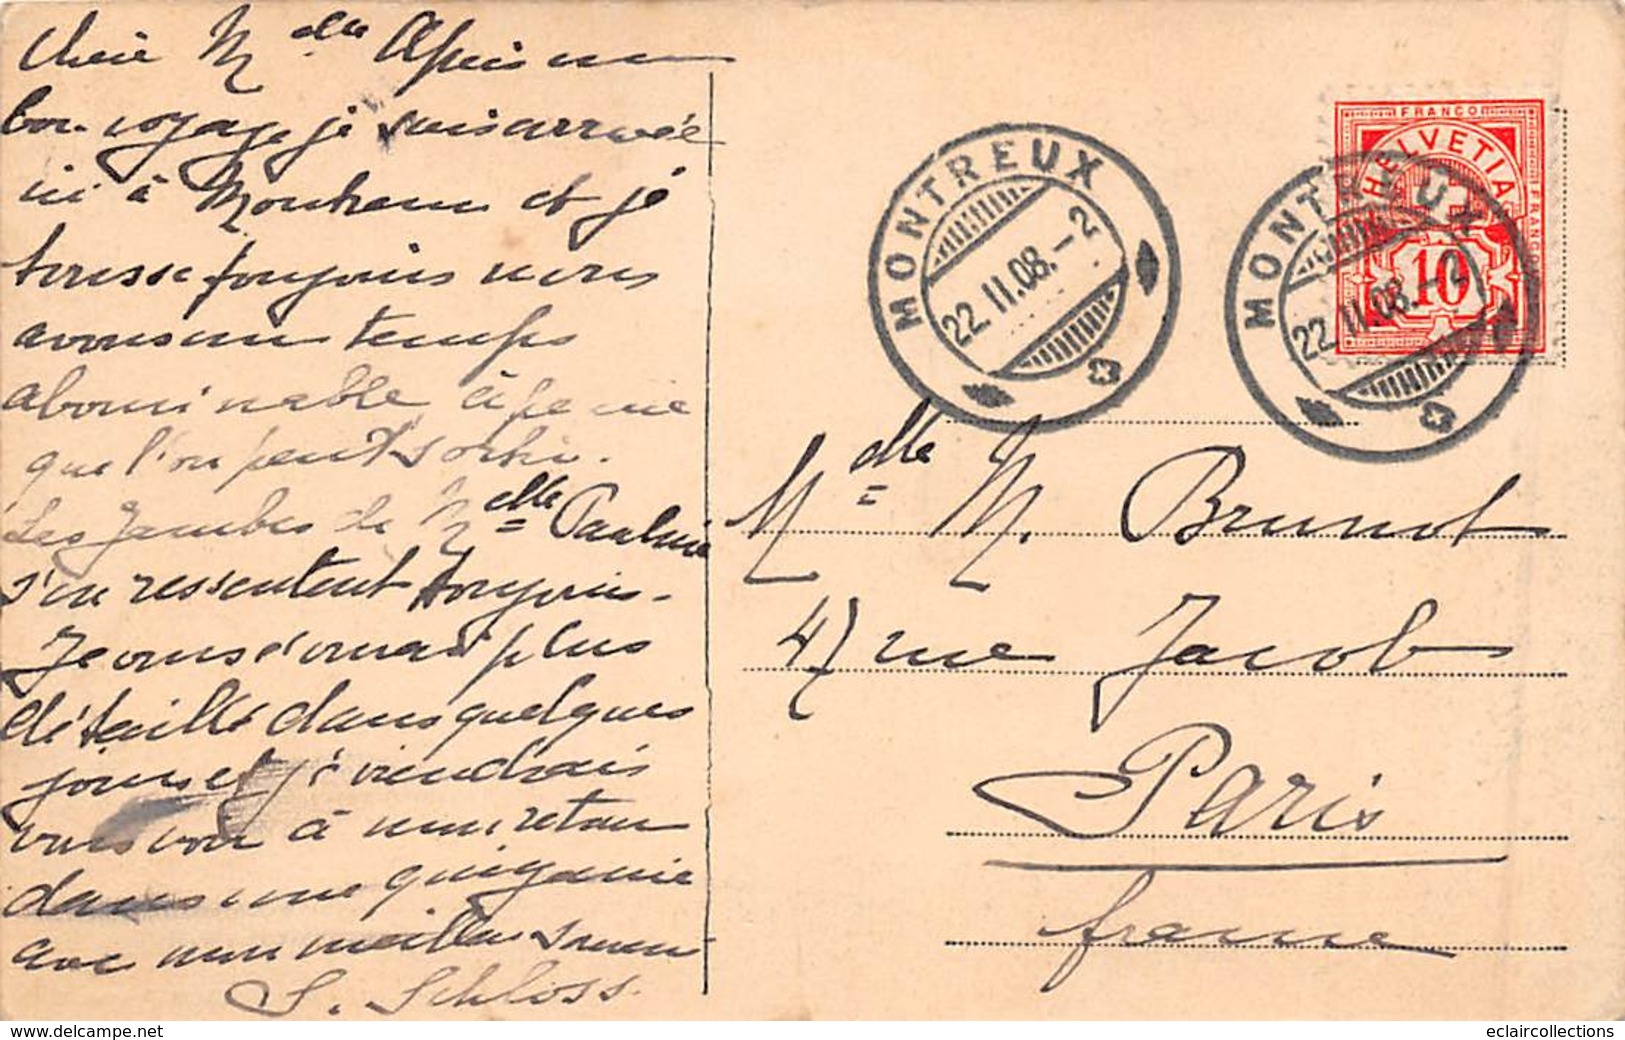 Chère Mdlle Après un
bon voyage je suis arrivée
ici à Montreux et je
tousse toujours nous
avons un temps
abominable, à peine
que l'on peut sortir.
Les Jambes de Mdlle Pauline
s'en ressentent toujours.
Je vous écrirai plus
détaillé dans quelques
jours et je viendrais
vous voir à mon retour
dans une quinzaine
avec mon meilleur souvenir
S. Schloss.
MONTREUX
22.II.08.–2
MONTREUX
22.II.08.–2
FRANCO
HELVETIA
FRANCO
10
Mdlle M. Brunot
47 rue Jacob
Paris
france
eclaircollections